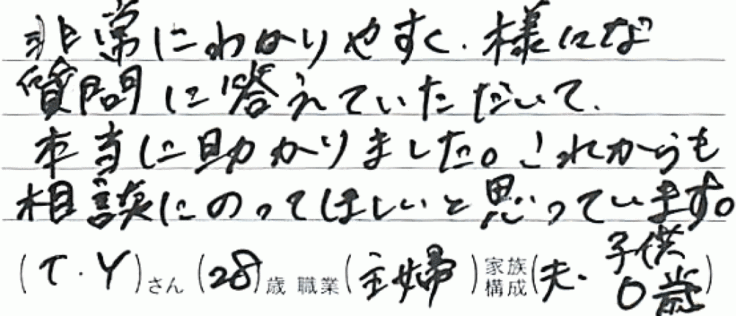 非常にわかりやすく、様々な
質問に答えていただいて、
本当に助かりました。これからも
相談にのってほしいと思っています。
(T.Y)さん (28)歳 職業(主婦)家族構成(夫・子供0歳)